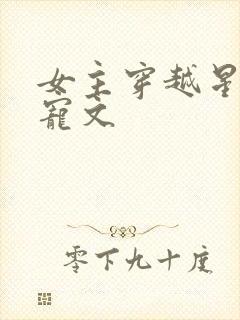 女主穿越星
宠文
零下九十度